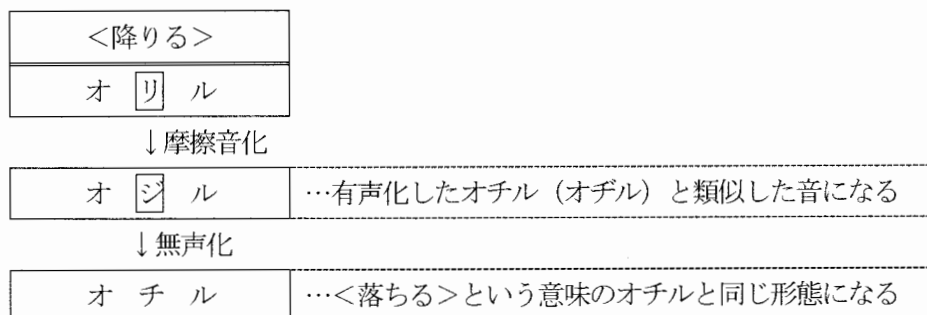 ＜降りる＞
オ リ ル
↓摩擦音化
オ ジ ル …有声化したオチル（オヂル）と類似した音になる
↓無声化
オ チ ル …＜落ちる＞という意味のオチルと同じ形態になる